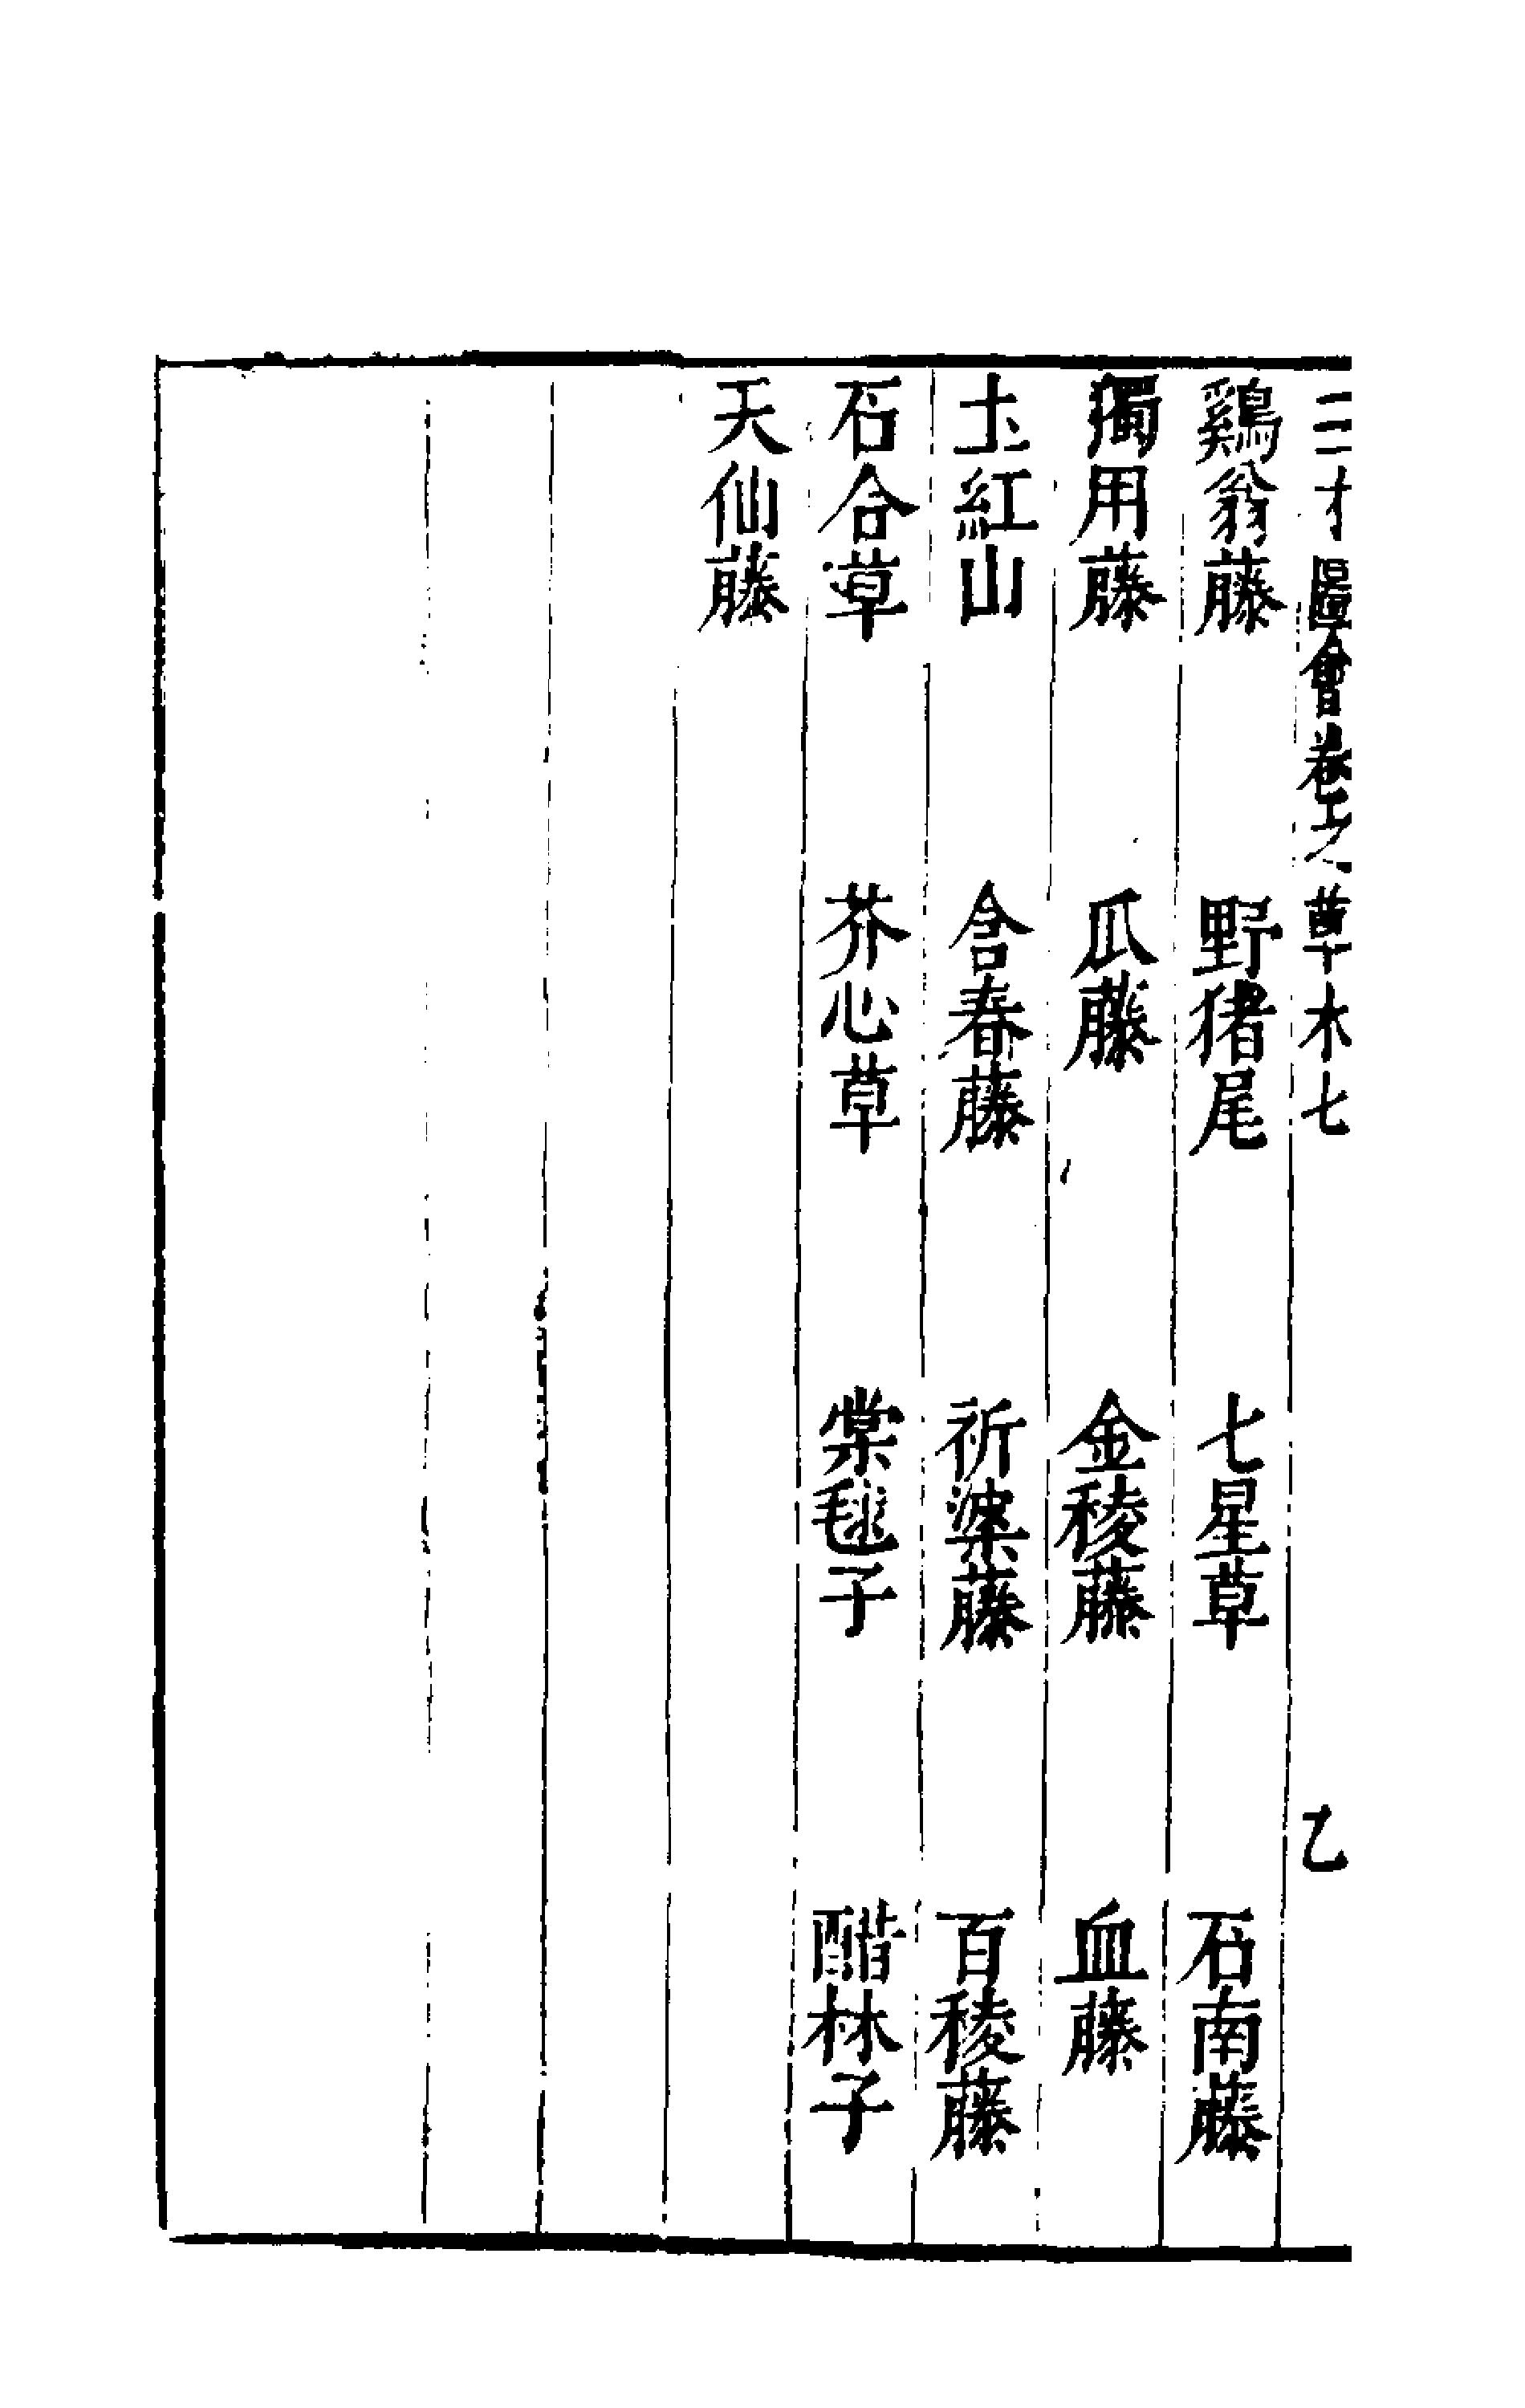 三才圖會卷之草木七 乙
鷄翁藤 野猪尾 七星草 石南藤
獨用藤 瓜藤 金稜藤 血藤
圡紅山 含春藤 祈婆藤 百稜藤
石合草 芥心草 棠毬子 醋林子
天仙藤